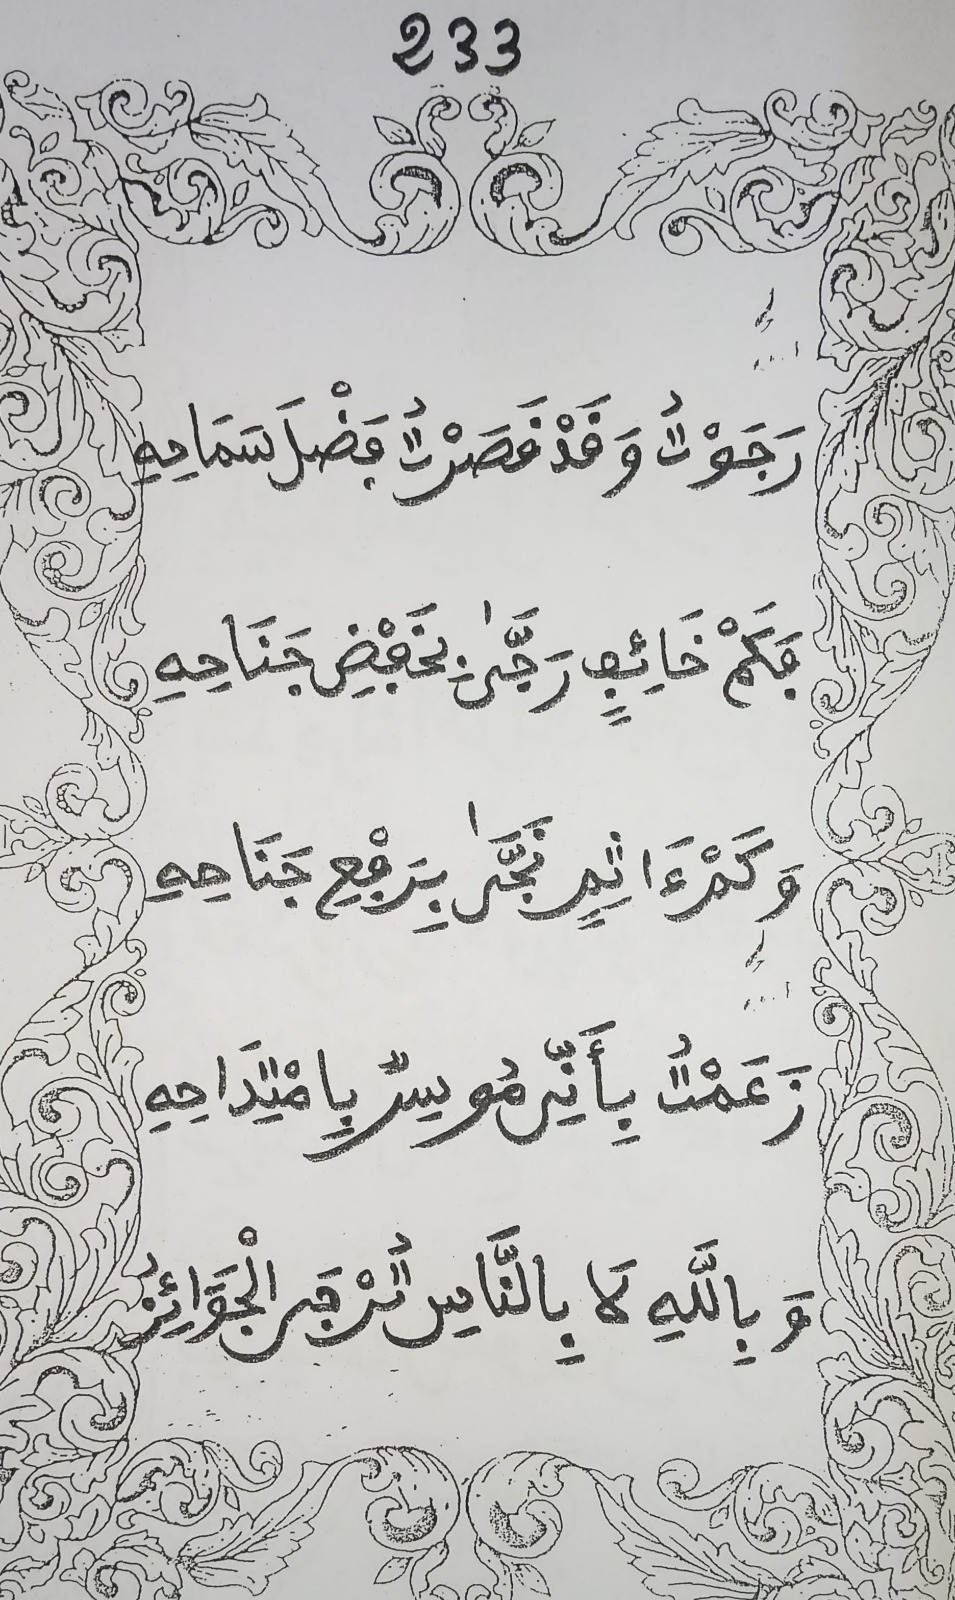 233
رَجَوْتُ وَقَدْ قَصَرْتُ فَضْلَ سَمَاحِهِ
فَكَمْ خَائِفٍ رَجَّىٰ بِخَفْضِ جَنَاحِهِ
وَكَمْ ءَاثِمٍ نَجَّىٰ بِرَفْعِ جَنَاحِهِ
زَعَمْتُ بِأَنِّي مُوسِرٌ بِامْتِدَاحِهِ
وَبِاللَّهِ لَا بِالنَّاسِ تُرْجَى الْجَوَائِزُ